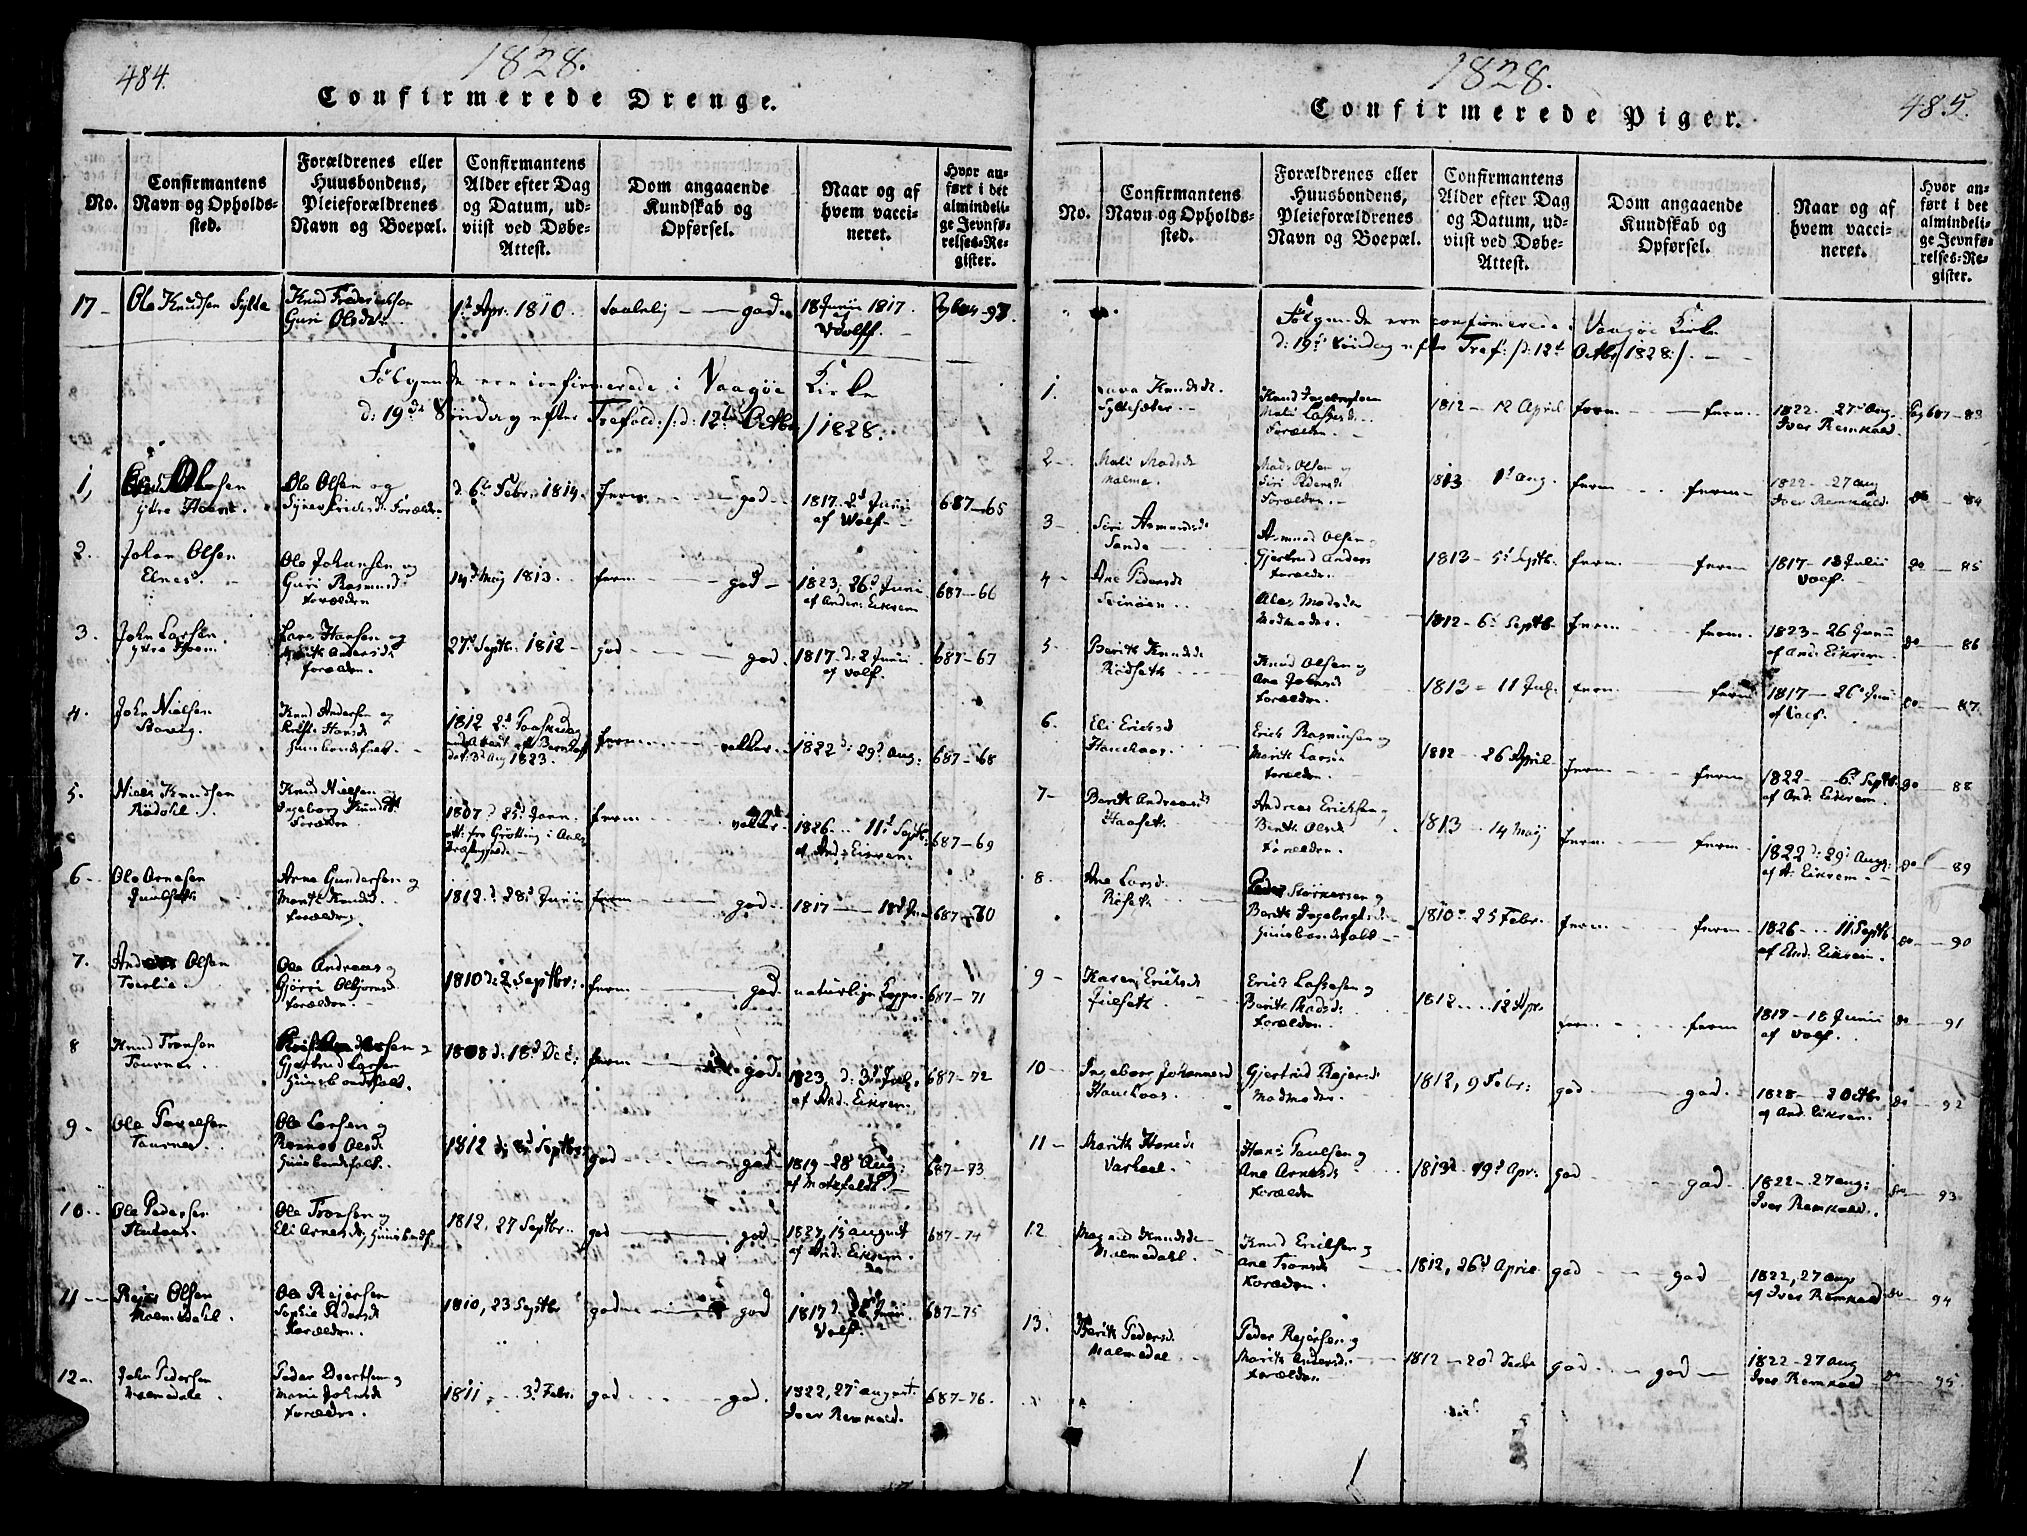 484.
1828.
Confirmerede Drenge.
No.
Confirmantens
Navn og Opholds-
sted.
Forældrenes eller
Huusbondens,
Pleieforældrenes
Navn og Boepæl.
Confirmantens
Alder efter Dag
og Datum, ud-
viist ved Døbe-
Attest.
Dom angaaende
Kundskab og
Opførsel.
Naar og af
hvem vacci-
neret.
Hvor an-
ført i det
almindeli-
ge Jevnfø-
relses-Re-
gister.
17 - Ole Knudsen Sylte
Knud
Guri Olsdt
1d Apr. 1810. god 18 Junii 1817.
Wolff
Følgende ere confirmerede i Vaagøe Kirke
d: 19de Søndag efter Trefold: /: d: 12te Octbr /1828.
1, Olsen
ytre
Ole Olsen og
Forældre
d. 6te Febr. 1814. god 1817. 2d Junii
af Wolf
687-65
2. Johan Olsen
Elnes.
Ole Johansen og
Guri Rasmusd
forældre
14d Maij 1813. ferm god 1823, 26d Juni
af Ander: Eikrem
687-66
3. John Larsen
ytre
Lars Hansen og
forældre.
27d Septbr. 1812 god god. 1817. d. 2 Junii
af Wolf.
687-67
4. John Nielsen
Knud Andersen og
Hansd
Huusbondsfolk.
1812 2d Paaskedag
1823.
ferm 1822 d: 29d Aug:
687-68
5. Niels Knudsen
Knud Nielsen
Ingeborg Knudsd
Forældre
1807 d 25d Janr.
ferm 1826 11d Septbr:
af And: Eikrem
687-69
6 - Ole Arnesen
Arne Gundersen og
Marit Knudsd.
forældre
1812. d 28d Junii ferm god. 1817 18d Jun
687-70
7. Olsen
Ole Andreas og
forældre.
1810 d: 2 Septbr: ferm god. naturlige Kopper. 687-71
8 Knud Tronsen
Gjertrud Larsen
Huusbondsfolk.
1808 d: 18d Dec: ferm god. 1823, d: 3d Julj.
af And. Eikrem.
687-72
9 - Ole
Ole Larsen og
Olsd
Huusbondsfolk.
1812 d. 8d Septbr: god god 1819 - 28d Aug:
af Motzfeldt.
687-73
10 - Ole Pedersen
Ole Tronsen og
Eli Arnesd, Huusbondsf.
1812, 27 Septbr. god god 1827, 15 august
af And. Eikrem.
687-74
11 - Rejer Olsen
Malmedahl.
Ole Rejersen
Sophie Pedersd
Forældre.
1810, 23 Septbr god god 1817 d 26 Junii
Wolf.
687-75
12 - John Pedersen
Malmedahl.
Peder Evertsen og
Marie Johnsd
forældre.
1811 3d Febr: god god. 1822, 27 august.
Iver Remkald.
687-76.
485.
1828.
Confirmerede Piger.
No.
Confirmantens
Navn og Opholds-
sted.
Forældrenes eller
Huusbondens,
Pleieforældrenes
Navn og Boepæl.
Confirmantens
Alder efter Dag
og Datum, ud-
viist ved Døbe-
Attest.
Dom angaaende
Kundskab og
Opførsel.
Naar og af
hvem vacci-
neret.
Hvor an-
ført i det
almindeli-
ge Jevnfø-
relses-Re-
gister.
Følgende ere confirmerede i Vaagøe Kirke
d: 19de Søndag efter Tref: /: d: 12te Octbr /1828 :/.
1. Knudsd.
Syltesæter
Knud Ingebrigtsen
Mali Lassesd.
Forældre.
1812 - 12 April ferm ferm. 1822 27d Aug.
Iver Remkald.
687-83
2 - Mali Madsd
Malme.
Mads Olsen og
Siri Pedersd
Forældre.
1813 1d Aug. ferm ferm 1822 - 27 Aug
Iver Remkald.
do 84
3 - Siri Asmundsd
Sande
Asmund Olsen
Gjertrud Anders
forældre.
1813 - 5d Septbr. ferm ferm 1817 - 18 Julii
Wolf.
do 85
4 - Ane Pedersd
Svinøen
Madsd
Madmoder.
1812 - 6d Septbr. ferm ferm. 1823 - 26 Junii
af And: Eikrem
do 86
5. Berith Knudsd
Rødseth
Knud Olsen og
Ane Johnsd
forældre.
1813 - 11 Julj. ferm ferm 1817 - 26d Juni
af Wolf.
do 87.
6. Eli Ericksd
Haukaas
Erick Rasmusen og
Marith Larsd
forældre.
1812 26 April ferm ferm. 1822 6d Septbr
af And. Eikrem.
do 88
7 - Berith Andreasd
Haaseth
Andreas Ericksen,
Berith Olsd
forældre.
1813 14 Maij ferm ferm. 1822 d: 29d Aug:
af A: Eikrem.
do 89
8. Ane Larsd.
Peder Størkersen og
Berith Ingebrigtsd
Huusbondsfolk
1810 25 Febr. ferm ferm 1826 11. Septbr
af And: Eikrem.
do 90
9 - Karen Ericksd
Julseth
Erick Lassesen og
Berith Madsd.
forældre.
1812 12 Apr. ferm ferm 1817 - 18 Junii
af Wolf.
do 91
10 - Ingebor Johannesd
Haukaas
Gjertrud Rejersd
Madmoder.
1812, 9 Febr: god god. 1828 2 Octbr
af And: Eikrem.
do 92
11 - Marith Hansd
Varhoel.
Hans Paulsen og
Ane Arnesd
forældre
1813 19d Apr: god god. 1822 - 27 aug:
Iver Remkald.
do 93
12. Knudsd
Malmedahl.
Knud Ericksen og
Ane Tronsd
forældre.
1812, 26d April god god 1822, 27 aug
af Iver Remkald
do 94
13. Berith Pedersd.
Malmedal
Peder Rejersen og
Marith Andersd.
forældre.
1812 - 20d god god 1822 - 27 aug
Iver Remkald
do 95